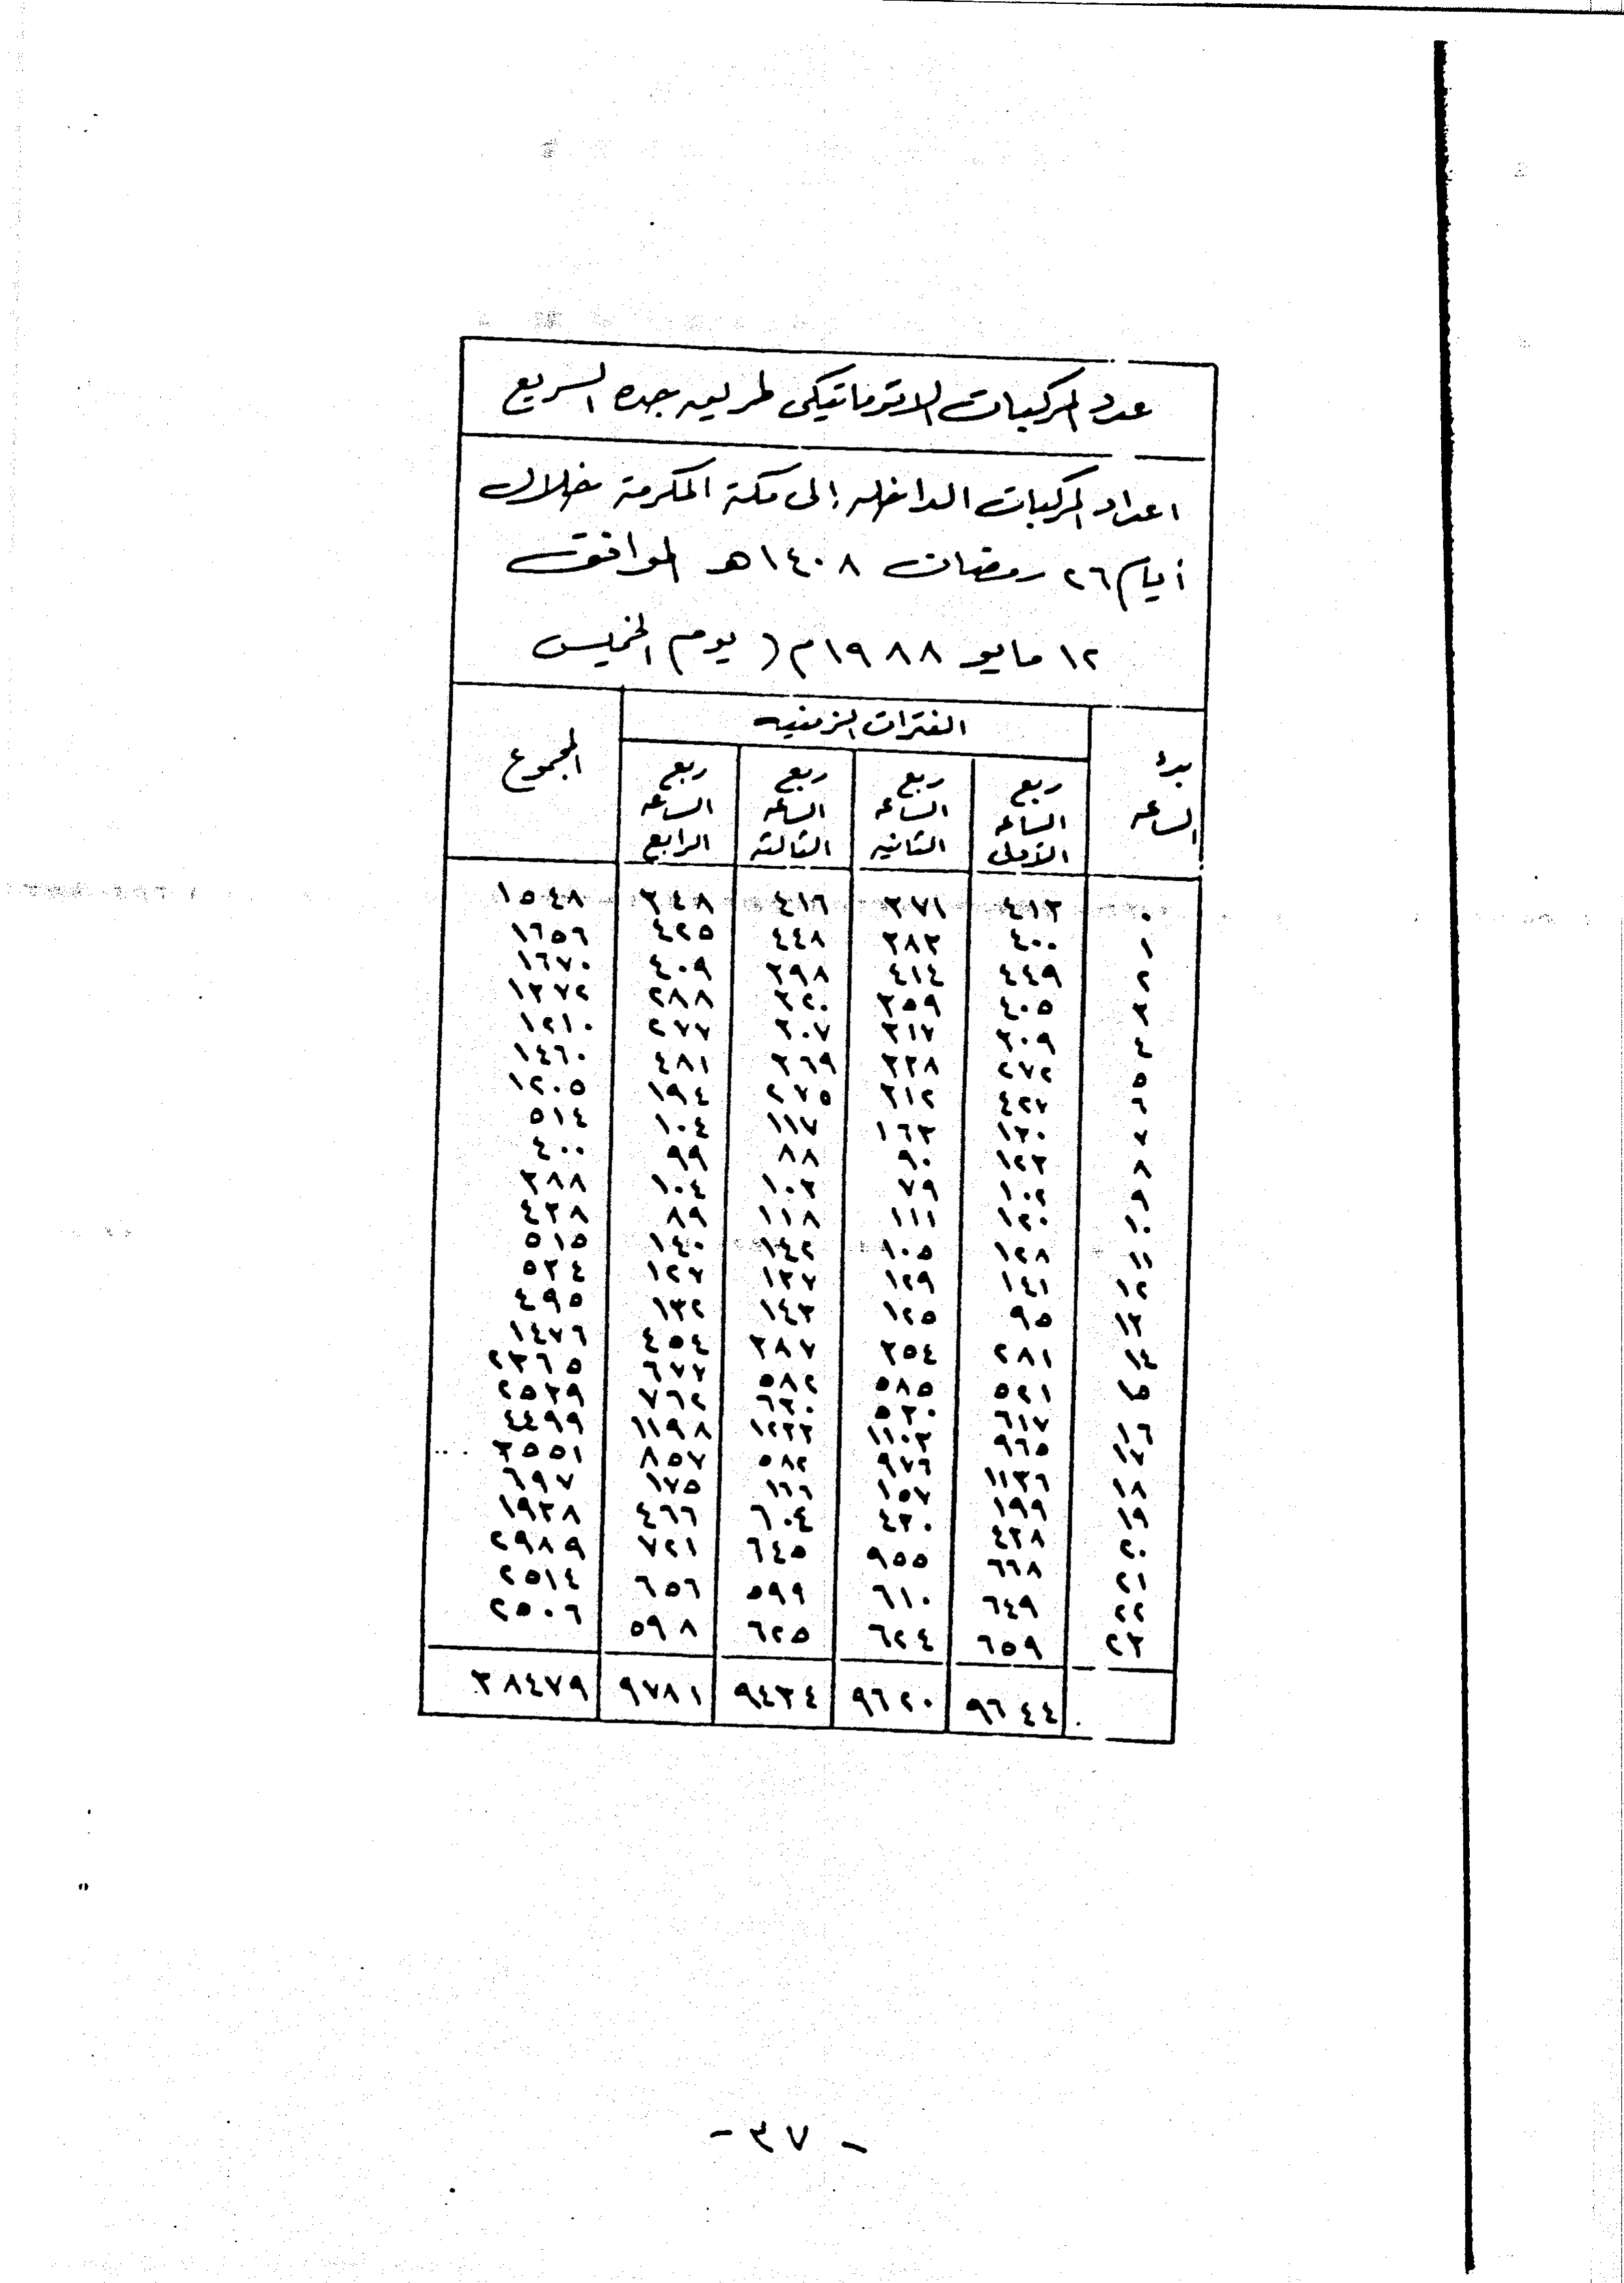 عدد المركبات الاتوماتيكى طريق جده السريع
اعداد المركبات الداخله إلى مكة المكرمة خلال
أيام ٢٦ رمضان ١٤٠٨هـ الموافق
١٢ مايو ١٩٨٨م ( يوم الخميس
بدء الساعه الفترات الزمنيه المجموع
ربع الساعه الأولى ربع الساعه الثانيه ربع الساعه الثالثة ربع الساعه الرابع
٠ ٤١٣ ٣٧١ ٤١٦ ٣٤٨ ١٥٤٨
١ ٤٠٠ ٣٨٣ ٤٤٨ ٤٢٥ ١٦٥٦
٢ ٤٤٩ ٤١٤ ٣٩٨ ٤٠٩ ١٦٧٠
٣ ٤٠٥ ٣٥٩ ٣٢٠ ٢٨٨ ١٣٧٢
٤ ٣٠٩ ٣١٧ ٣٠٧ ٢٧٧ ١٢١٠
٥ ٢٧٢ ٣٣٨ ٣٦٩ ٤٨١ ١٤٦٠
٦ ٤٢٧ ٣١٢ ٢٧٥ ١٩٤ ١٢٠٥
٧ ١٣٠ ١٦٣ ١١٧ ١٠٤ ٥١٤
٨ ١٢٣ ٩٠ ٨٨ ٩٩ ٤٠٠
٩ ١٠٢ ٧٩ ١٠٣ ١٠٤ ٣٨٨
١٠ ١٢٠ ١١١ ١١٨ ٨٩ ٤٣٨
١١ ١٢٨ ١٠٥ ١٤٢ ١٤٠ ٥١٥
١٢ ١٤١ ١٢٩ ١٣٧ ١٢٧ ٥٣٤
١٣ ٩٥ ١٢٥ ١٤٣ ١٣٢ ٤٩٥
١٤ ٢٨١ ٣٥٤ ٣٨٧ ٤٥٤ ١٤٧٦
١٥ ٥٢١ ٥٨٥ ٥٨٢ ٦٧٧ ٢٣٦٥
١٦ ٦١٧ ٥٣٠ ٦٣٠ ٧٦٢ ٢٥٣٩
١٧ ٩٦٥ ١١٠٣ ١٢٣٣ ١١٩٨ ٤٤٩٩
١٨ ١١٣٦ ٩٧٦ ٥٨٢ ٨٥٧ ٣٥٥١
١٩ ١٩٩ ١٥٧ ١٦٦ ١٧٥ ٦٩٧
٢٠ ٤٣٨ ٤٣٠ ٦٠٤ ٤٦٦ ١٩٣٨
٢١ ٦٦٨ ٩٥٥ ٦٤٥ ٧٢١ ٢٩٨٩
٢٢ ٦٤٩ ٦١٠ ٥٩٩ ٦٥٦ ٢٥١٤
٢٣ ٦٥٩ ٦٢٤ ٦٢٥ ٥٩٨ ٢٥٠٦
٩٦٤٤ ٩٦٢٠ ٩٤٣٤ ٩٧٨١ ٣٨٤٧٩
- ٣٧ -